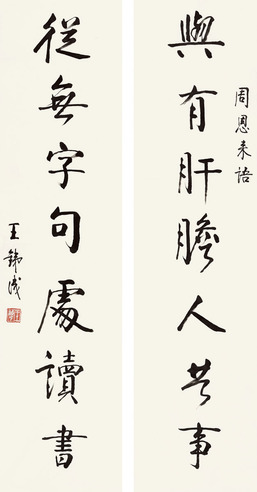 與有肝膽人共事
周恩来語
從無字句處讀書
王錦